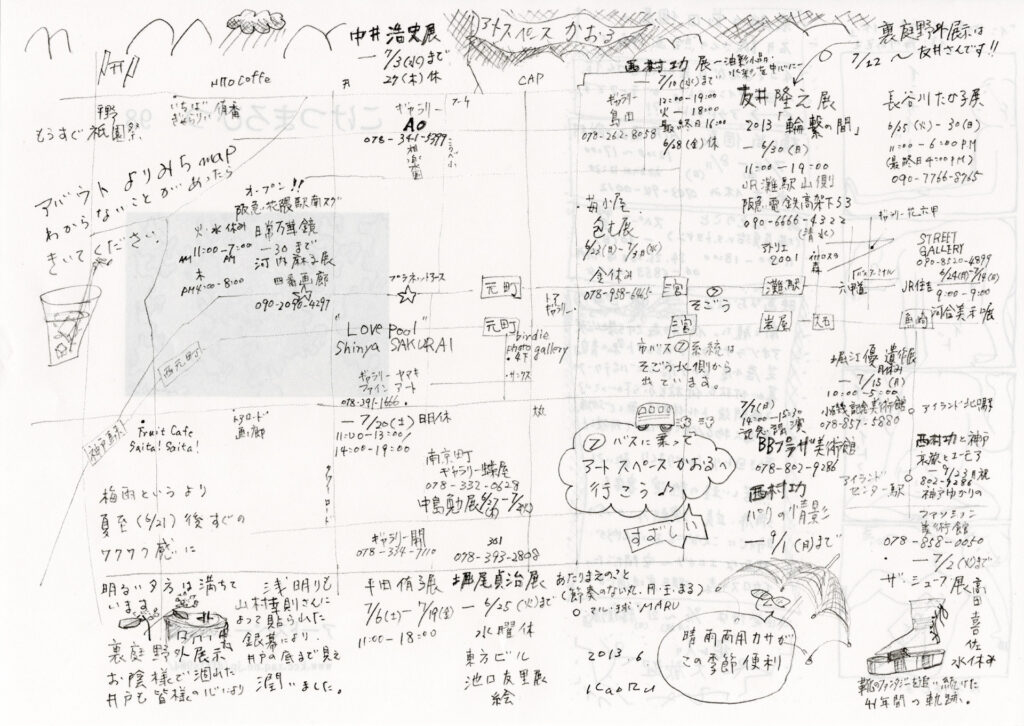 中井浩史展
― 7/3(水)まで
27(木)休
アートスペース かおる
裏庭野外展示は
7/22 ～ 友井さんです!!
HTTO Coffe
CAP
西村功展
― 7/10(水)まで
12:00-19:00
火 ― 18:00
最終日16:00
6/28(金)休
ギャラリー
島田
078-262-8058
友井隆之展
2013「輪繫の間」
― 6/30(日)
11:00 - 19:00
JR灘駅山側
阪急電鉄高架下53
090-6666-4322
(清水)
長谷川たか子展
6/25(火) - 30(日)
11:00 - 6:00PM
(最終日4:00PM)
090-7766-8765
平野
もうすぐ祇園祭
ギャラリー
Ao
078-341-5399
相楽園
アバウト よりみち map
わからないことがあったら
きいてください
オープン!!
阪急花隈駅南スグ
火・水休み
日常万華鏡
AM11:00-7:00
―30まで
河内麻子展
木
PM4:00-8:00
四番画廊
090-2098-4297
プラネットアース
芦小屋
包む展
6/23(日)-7/3(水)
全休み
078-958-6465
アトリエ
2001
ギャラリー花六甲
STREET
GALLERY
090-8520-4899
JR住吉
9:00 - 9:00
元町
三宮
そごう
灘駅
六甲道
元町
三宮
岩屋
魚崎
河合美和展
トア
ギャラリー
"Love pool"
Shinya SAKURAI
birdie
photo gallery
サンクス
西元町
ギャラリー ヤマキ
ファイン アート
078-391-1666
― 7/20(土)
日休
11:00-13:00
14:00-19:00
市バス⑦系統は
そごう北側から
出ています。
堀江優遺作展
月休み
― 7/15(月)
10:00-5:00
小磯記念美術館
078-857-5880
アイランド北口駅
7/7(日)
14:00-15:30
記念講演
BBプラザ美術館
078-802-9286
西村功
パリの情景
― 9/1(日)まで
神戸駅
Fruit Cafe
Saita! Saita!
トアロード
画廊
タワーロード
⑦バスに乗って
アートスペースかおるへ
行こう♪
すずしい
西村功と神戸
哀歓とユーモア
アイランド
センター駅
神戸ゆかりの
ファッション
美術館
078-858-0050
― 7/2(火)まで
ザ・シューフ展
高田喜佐
水休み
靴のファンタジーを追い続けた
41年間の軌跡。
南京町
ギャラリー蝶屋
078-332-0628
中島勳展
梅雨というより
夏至(6/21)後すぐの
ワクワク感に
ギャラリー開
078-334-7110
301
078-393-2808
明るい夕方は満ちて
います。
裏庭野外展示
お陰様で涸れた
井戸も皆様の心により
浅明りも
山村幸則さんに
よって貼られた
銀幕により
井戸の底まで見え
潤いました。
平田侑子展
7/6(土) ― 7/19(金)
11:00 - 18:00
堀尾貞治展
あたりまえのこと
― 6/25(火)まで
水曜休
東方ビル
池口友里展
絵
2013.6
KaoRu
晴雨両用カサが
この季節便利